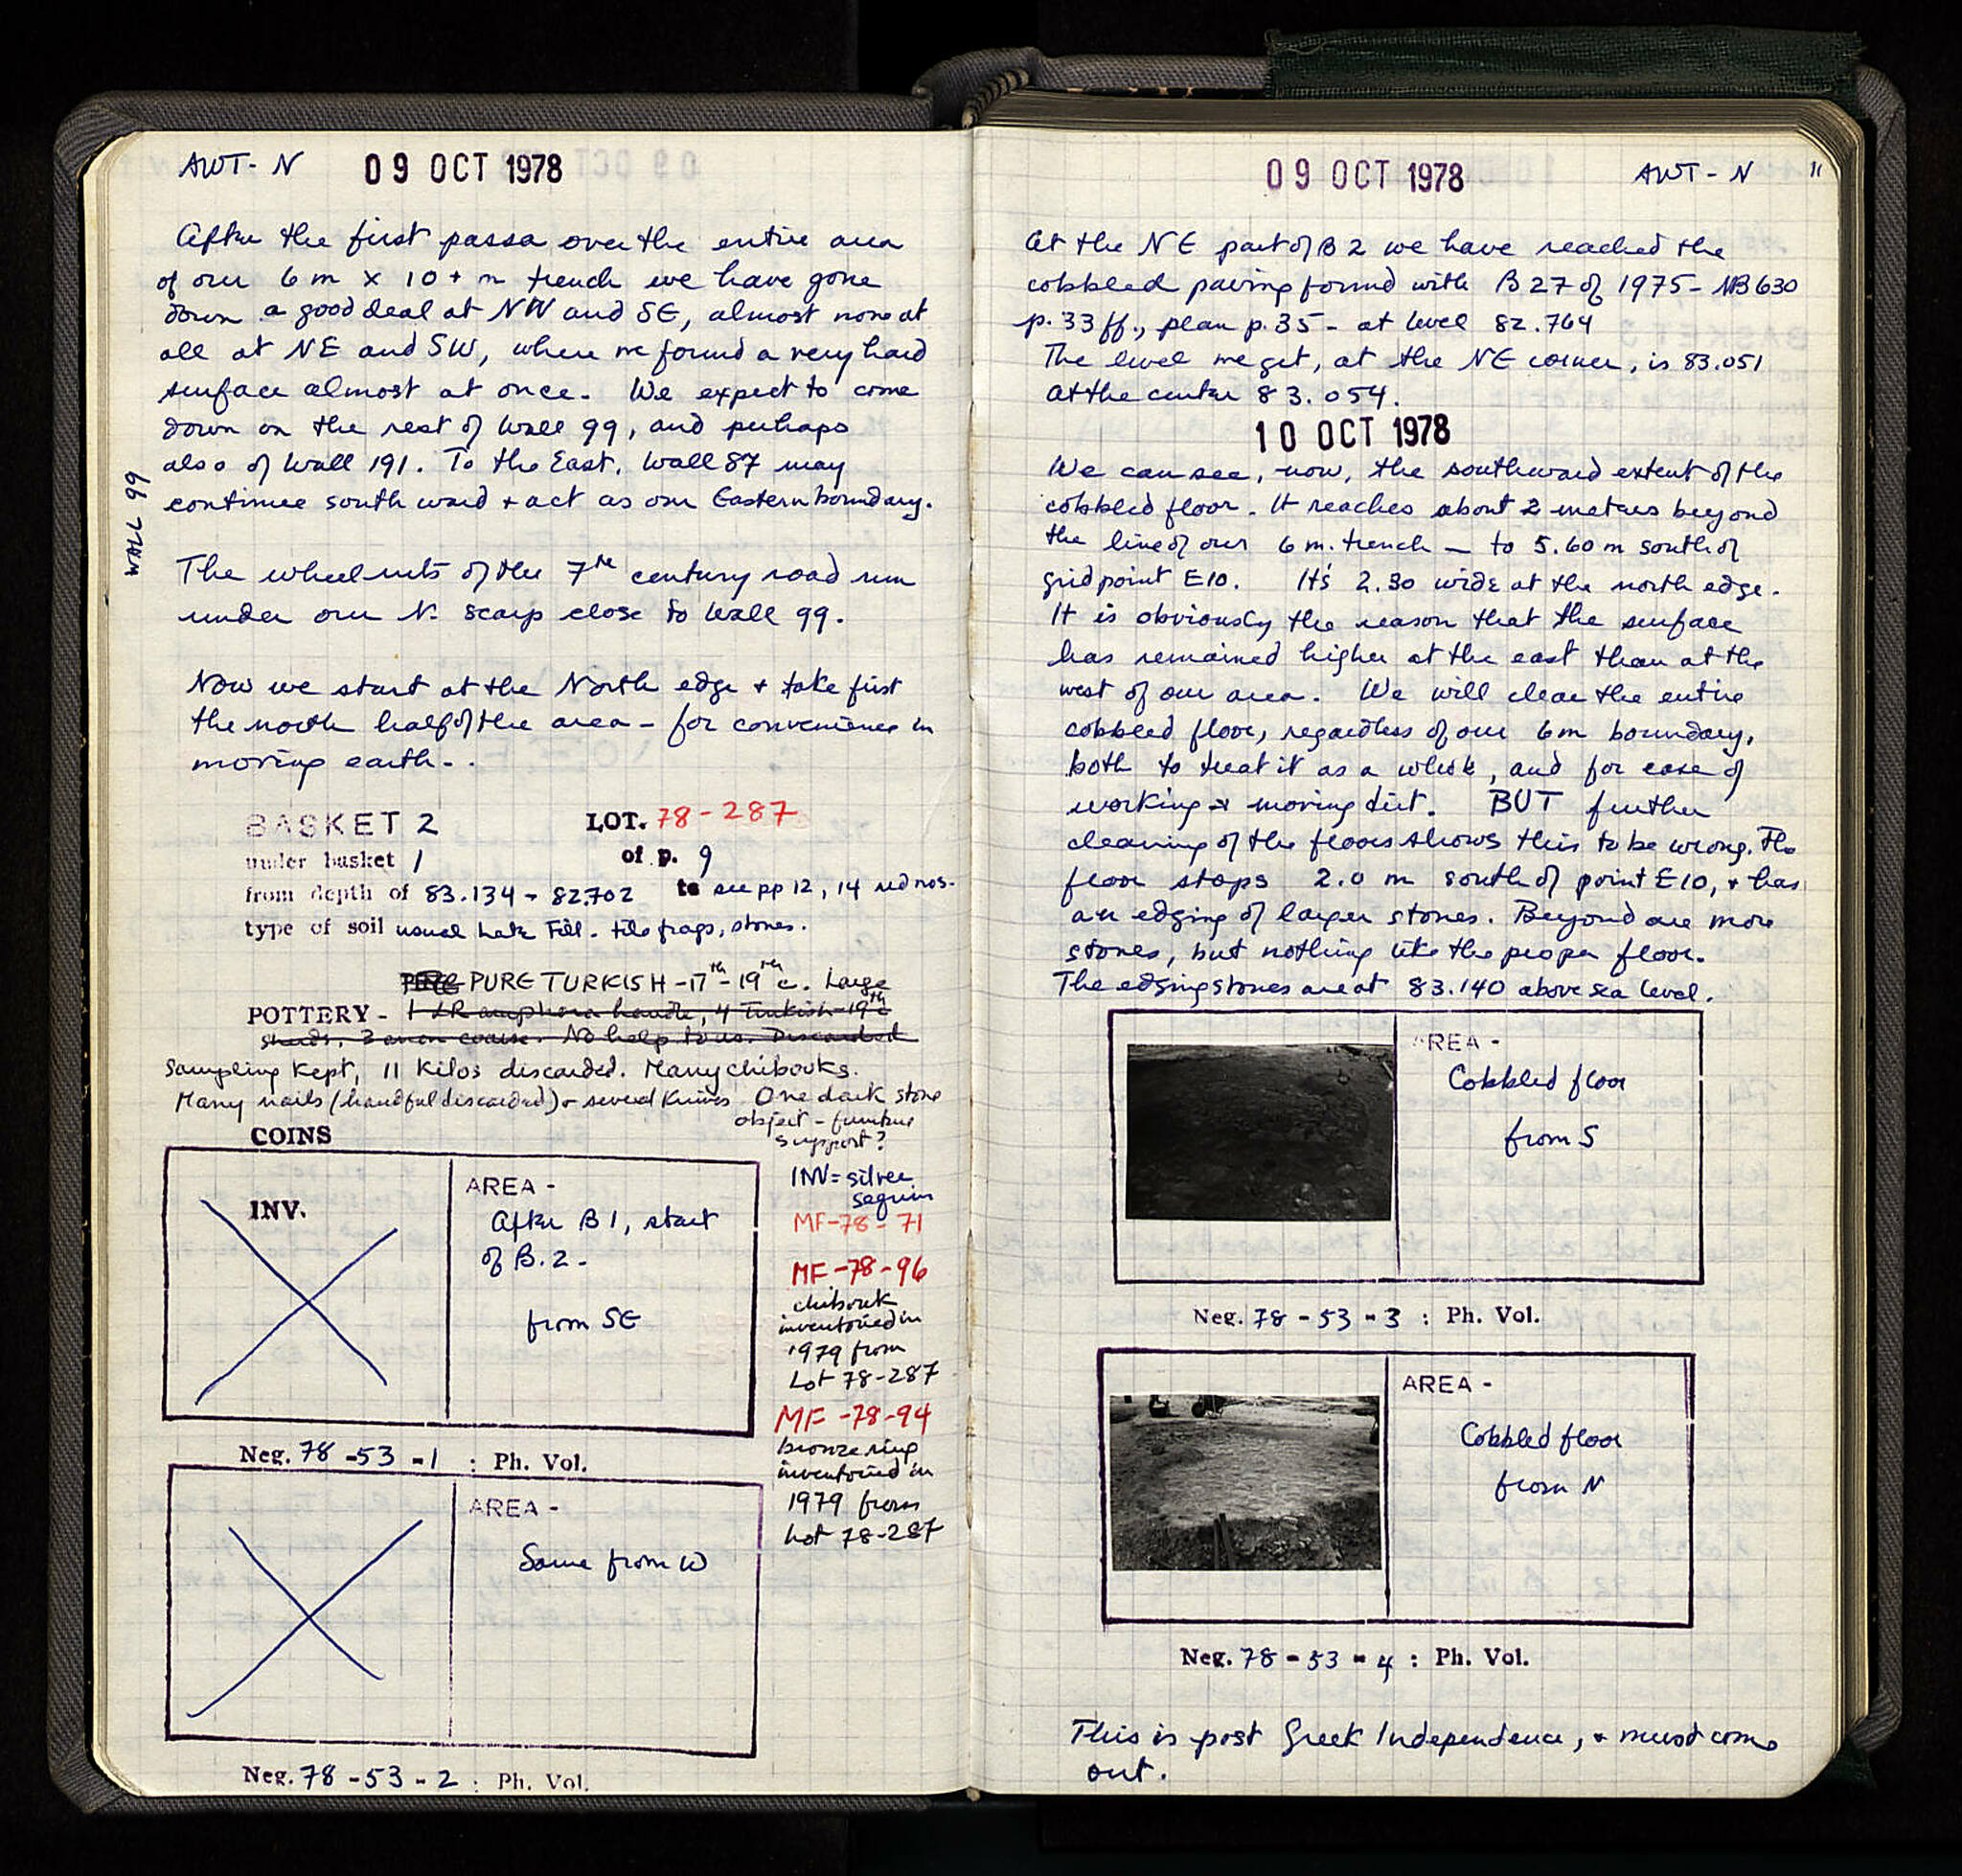 AWT- N 09 OCT 1978
After the first passa over the entire area
of our 6 m x 10 + m trench we have gone
down a good deal at NW and SE, almost none at
all at NE and SW, where we found a very hard
surface almost at once. We expect to come
down on the rest of Wall 99, and perhaps
also of Wall 191. To the East, Wall 87 may
continue southward + act as our Eastern boundary.
WALL 99
The wheelruts of the 7th century road run
under our N. scarp close to Wall 99.
Now we start at the North edge + take first
the north half of the area - for convenience in
moving earth - .
BASKET 2 LOT. 78-287
under basket 1 of p. 9
from depth of 83.134 - 82.702 to see pp 12, 14 red nos.
type of soil usual Late Fill - tile frags, stones.
PURE TURKISH - 17th - 19th c. Large
POTTERY - 1 LR amphora handle, 4 Turkish-19th c
sherds, 3 even coarse. No help to us. Discarded
Sampling kept, 11 kilos discarded. Many chibouks.
Many nails (handful discarded) + several knives One dark stone
object - furniture
support?
COINS
INV.
AREA -
After B 1, start
of B. 2 -
from SE
INV = silver
sequin
MF-78-71
MF-78-96
chibouk
inventoried in
1979 from
Lot 78-287
MF-78-94
bronze ring
inventoried in
1979 from
Lot 78-287
Neg. 78 - 53 - 1 : Ph. Vol.
AREA -
Same from W
Neg. 78 - 53 - 2 : Ph. Vol.
09 OCT 1978 AWT - N 11
At the NE part of B 2 we have reached the
cobbled paving found with B 27 of 1975 - NB 630
p. 33 ff., plan p. 35 - at level 82.764
The level we get, at the NE corner, is 83.051
At the center 83.054.
10 OCT 1978
We can see, now, the southward extent of the
cobbled floor. It reaches about 2 meters beyond
the line of our 6 m. trench - to 5.60 m south of
gridpoint E10. It's 2.30 wide at the north edge.
It is obviously the reason that the surface
has remained higher at the east than at the
west of our area. We will clear the entire
cobbled floor, regardless of our 6 m boundary,
both to treat it as a whole, and for ease of
working + moving dirt. BUT further
cleaning of the floor shows this to be wrong. The
floor stops 2.0 m south of point E10, + has
an edging of larger stones. Beyond are more
stones, but nothing like the proper floor.
The edging stones are at 83.140 above sea level.
AREA -
Cobbled floor
from S
Neg. 78 - 53 - 3 : Ph. Vol.
AREA -
Cobbled floor
from N
Neg. 78 - 53 - 4 : Ph. Vol.
This is post Greek Independence, + must come
out.